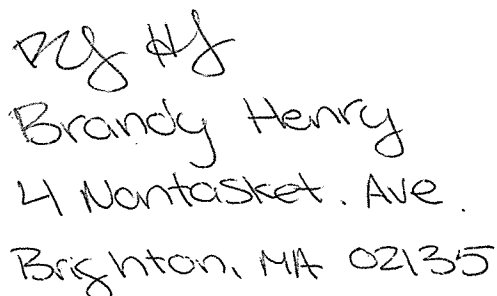 Brandy Henry
4 Nantasket. Ave.
Brighton, MA 02135